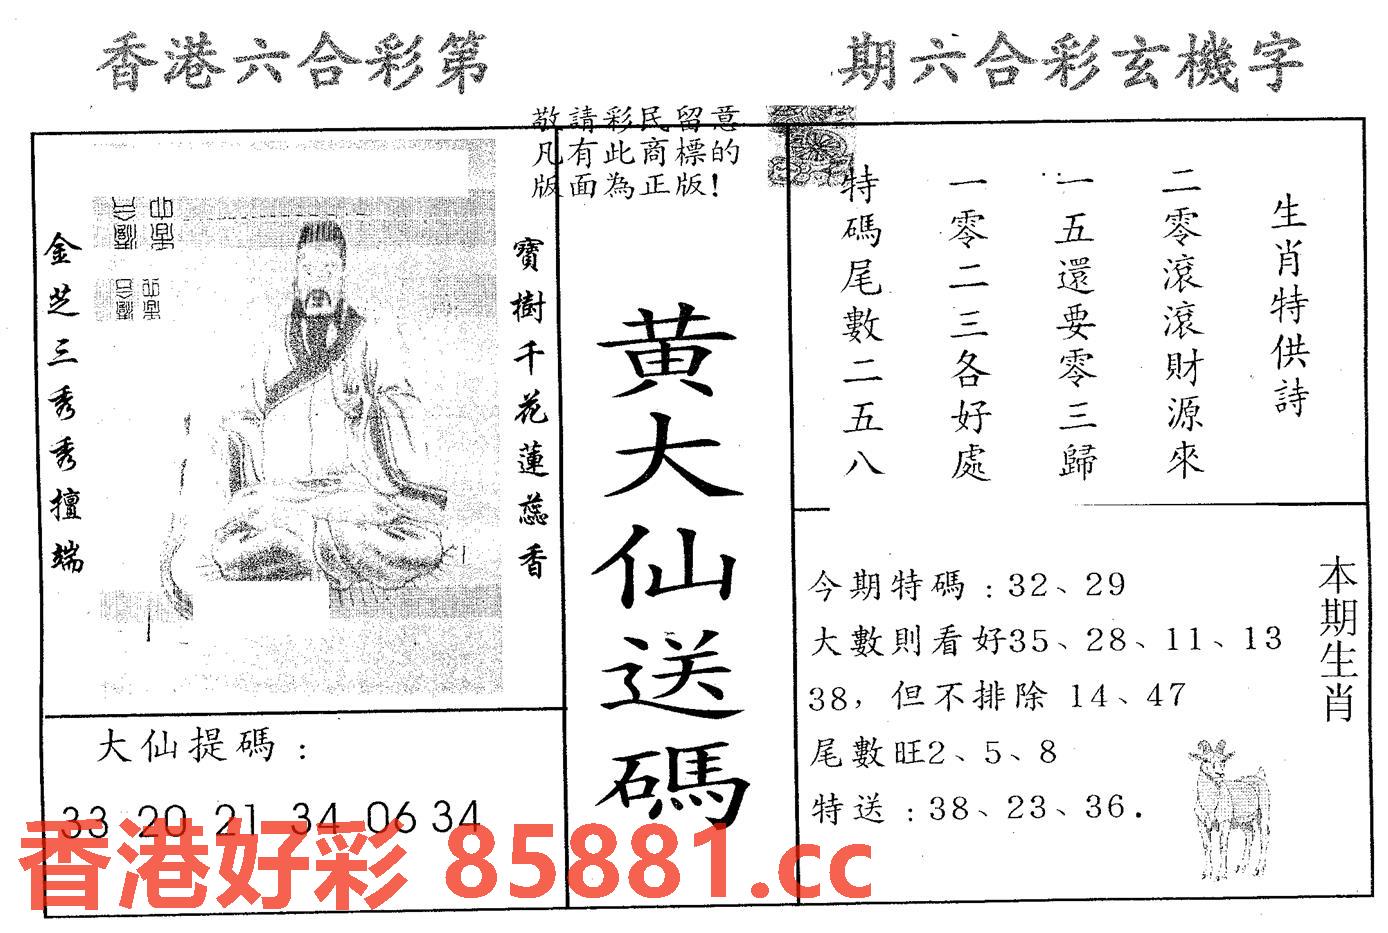 香港六合彩第 期六合彩玄機字
敬請彩民留意
凡有此商標的
版面為正版!
金芝三秀秀擅端
寶樹千花蓮蕊香
黄大仙送碼
生肖特供詩
二零滾滾財源來
一五還要零三歸
一零二三各好處
特碼尾數二五八
大仙提碼：
33 20 21 34 06 34
本期生肖
今期特碼：32、29
大數則看好35、28、11、13
38，但不排除 14、47
尾數旺2、5、8
特送：38、23、36.
香港好彩 85881.cc